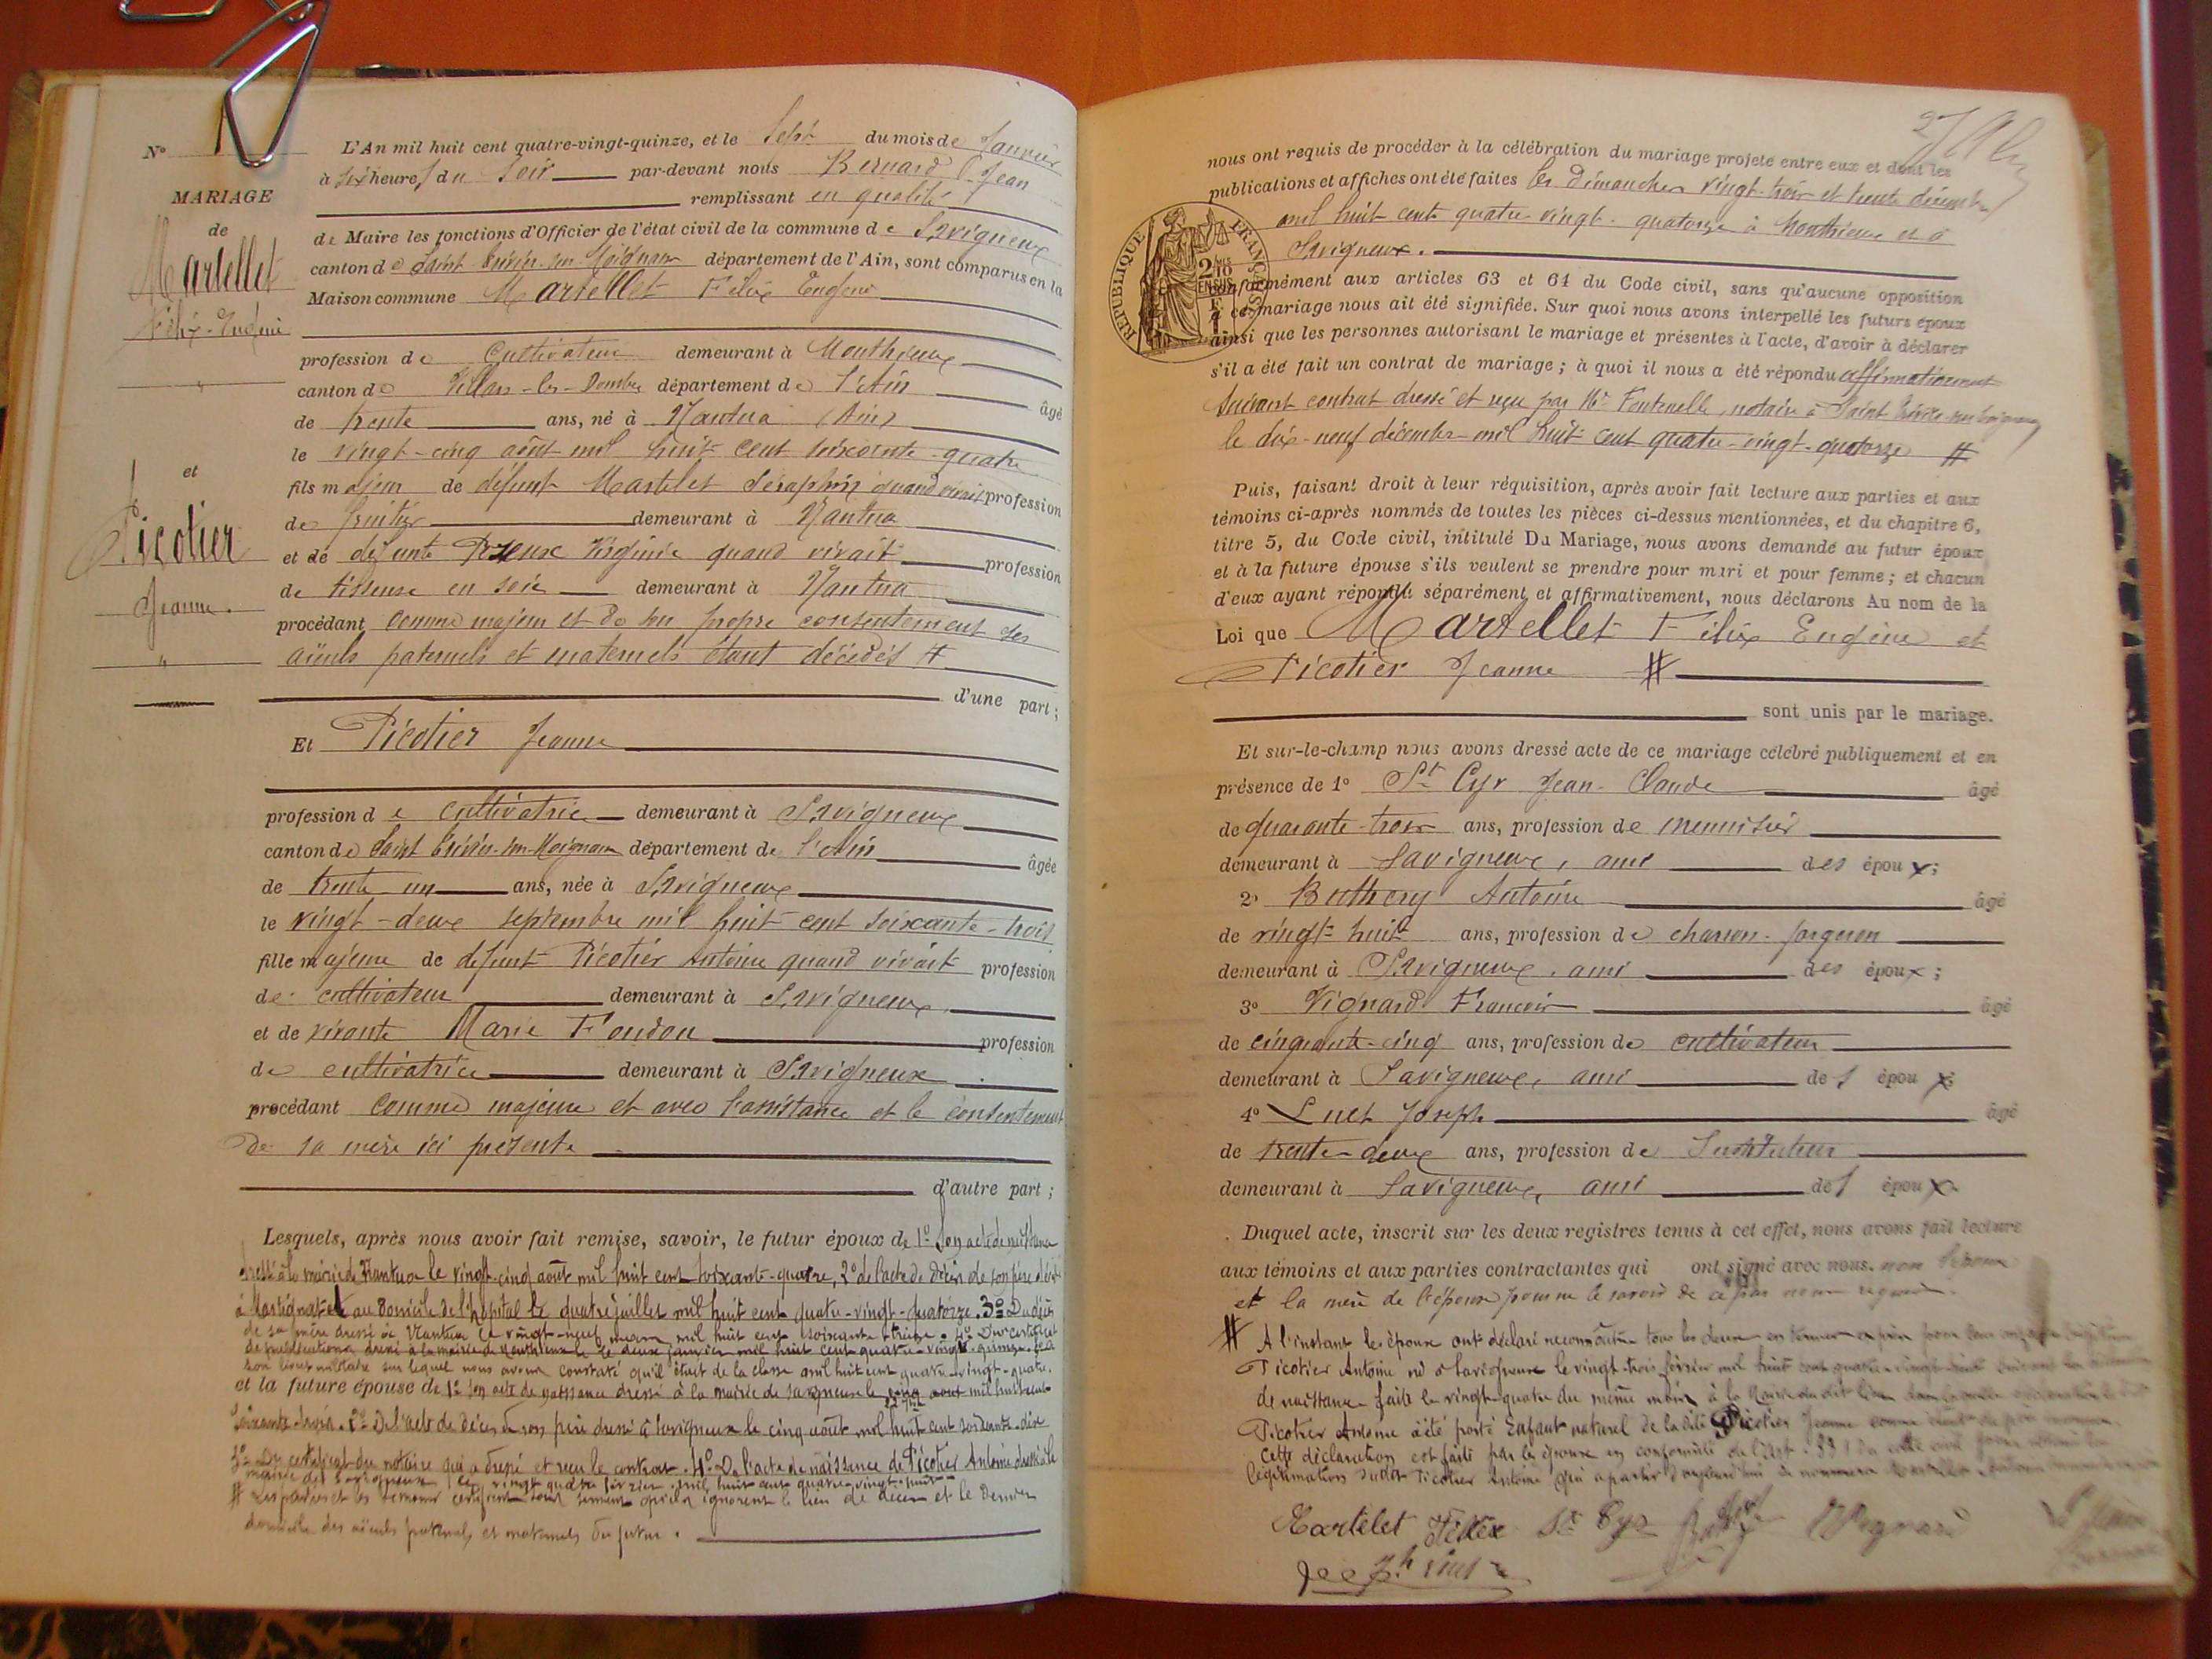 N° 1
MARIAGE
de
Martellet
Félix-Eugène
et
Picotier
Jeanne.
L'An mil huit cent quatre-vingt-quinze, et le Sept du mois de Janvier
à six heures du Soir par-devant nous Bernard Jean
remplissant en qualité
de Maire les fonctions d'Officier de l'état civil de la commune de Savigneux
canton de Saint Trivier-sur-Moignans département de l'Ain, sont comparus en la
Maison commune Martellet Félix Eugène
profession de Cultivateur demeurant à Monthieux
canton de Villars-les-Dombes département de l'Ain âgé
de trente ans, né à Nantua (Ain)
le vingt-cinq août mil huit cent soixante-quatre
fils majeur de défunt Martelet Séraphin quand vivait profession
de fruitier demeurant à Nantua
et de défunte Virginie quand vivait profession
de tisseuse en soie demeurant à Nantua
procédant comme majeur et de son propre consentement ses
aïeuls paternels et maternels étant décédés #
d'une part;
Et Picotier Jeanne
profession de cultivatrice demeurant à Savigneux
canton de Saint Trivier-sur-Moignans département de l'Ain âgée
de trente un ans, née à Savigneux
le vingt-deux septembre mil huit cent soixante-trois
fille majeure de défunt Picotier Antoine quand vivait profession
de cultivateur demeurant à Savigneux
et de vivante Marie Foudon profession
de cultivatrice demeurant à Savigneux
procédant comme majeure et avec l'assistance et le consentement
de sa mère ici présente
d'autre part;
Lesquels, après nous avoir fait remise, savoir, le futur époux de 1° Son acte de naissance
dressé à la mairie de Nantua le vingt-cinq août mil huit cent soixante-quatre, 2° de l'acte de décès de son père
à Martignat au domicile de l'hôpital le quatre juillet mil huit cent quatre-vingt-quatorze. 3° Du décès
de sa mère dressé à Nantua le vingt-neuf mars mil huit cent soixante treize. 4° Du certificat
de publications dressé à la mairie de Monthieux le deux janvier mil huit cent quatre-vingt-quinze.
son livret militaire sur lequel nous avons constaté qu'il était de la classe mil huit cent quatre-vingt-quatre.
et la future épouse de 1° son acte de naissance dressé à la mairie de Savigneux le mil huit cent
soixante-trois. 2° De l'acte de décès de son père dressé à Savigneux le cinq août mil huit cent soixante-dix
3° Du certificat du notaire qui a dressé et reçu le contrat. 4° De l'acte de naissance de Picotier Antoine dressé à la
mairie de Savigneux le vingt quatre février mil huit cent quatre-vingt-huit
# Les parties et les témoins certifient sous serment qu'ils ignorent le lieu de décès et le dernier
domicile des aïeuls paternels et maternels du futur.
nous ont requis de procéder à la célébration du mariage projeté entre eux et dont les
publications et affiches ont été faites les dimanches vingt-trois et trente décembre
mil huit cent quatre-vingt-quatorze à Monthieux et à
Savigneux.
RÉPUBLIQUE FRANÇAISE
conformément aux articles 63 et 64 du Code civil, sans qu'aucune opposition
à ce mariage nous ait été signifiée. Sur quoi nous avons interpellé les futurs époux
ainsi que les personnes autorisant le mariage et présentes à l'acte, d'avoir à déclarer
s'il a été fait un contrat de mariage; à quoi il nous a été répondu affirmativement
suivant contrat dressé et reçu par Me Fontenelle, notaire à Saint Trivier-sur-Moignans
le dix-neuf décembre mil huit cent quatre-vingt-quatorze #
Puis, faisant droit à leur réquisition, après avoir fait lecture aux parties et aux
témoins ci-après nommés de toutes les pièces ci-dessus mentionnées, et du chapitre 6,
titre 5, du Code civil, intitulé Du Mariage, nous avons demandé au futur époux
et à la future épouse s'ils veulent se prendre pour mari et pour femme; et chacun
d'eux ayant répondu séparément et affirmativement, nous déclarons Au nom de la
Loi que Martellet Félix Eugène et
Picotier Jeanne #
sont unis par le mariage.
Et sur-le-champ nous avons dressé acte de ce mariage célébré publiquement et en
présence de 1° St Cyr Jean-Claude âgé
de quarante-trois ans, profession de menuisier
demeurant à Savigneux, ami des époux;
2° Buthery Antoine âgé
de vingt-huit ans, profession de charron-forgeron
demeurant à Savigneux, ami des époux;
3° Vignard François âgé
de cinquante-cinq ans, profession de cultivateur
demeurant à Savigneux, ami des époux;
4° Luct Joseph âgé
de trente-deux ans, profession de Instituteur
demeurant à Savigneux, ami des époux.
Duquel acte, inscrit sur les deux registres tenus à cet effet, nous avons fait lecture
aux témoins et aux parties contractantes qui ont signé avec nous. non l'épouse
et la mère de l'épouse pour ne le savoir de ce
# A l'instant les époux ont déclaré reconnaître tous les deux
Picotier Antoine né à Savigneux le vingt-trois février mil huit cent quatre-vingt-huit
de naissance faite le vingt-quatre du même mois à la Mairie du dit lieu
Picotier Antoine a été porté Enfant naturel de la dite Picotier Jeanne
Cette déclaration est faite par les époux en conformité de l'art. 331 du code civil
légitimation dudit Picotier Antoine qui à partir d'aujourd'hui se nommera
Martelet Félix St Cyr Vignard